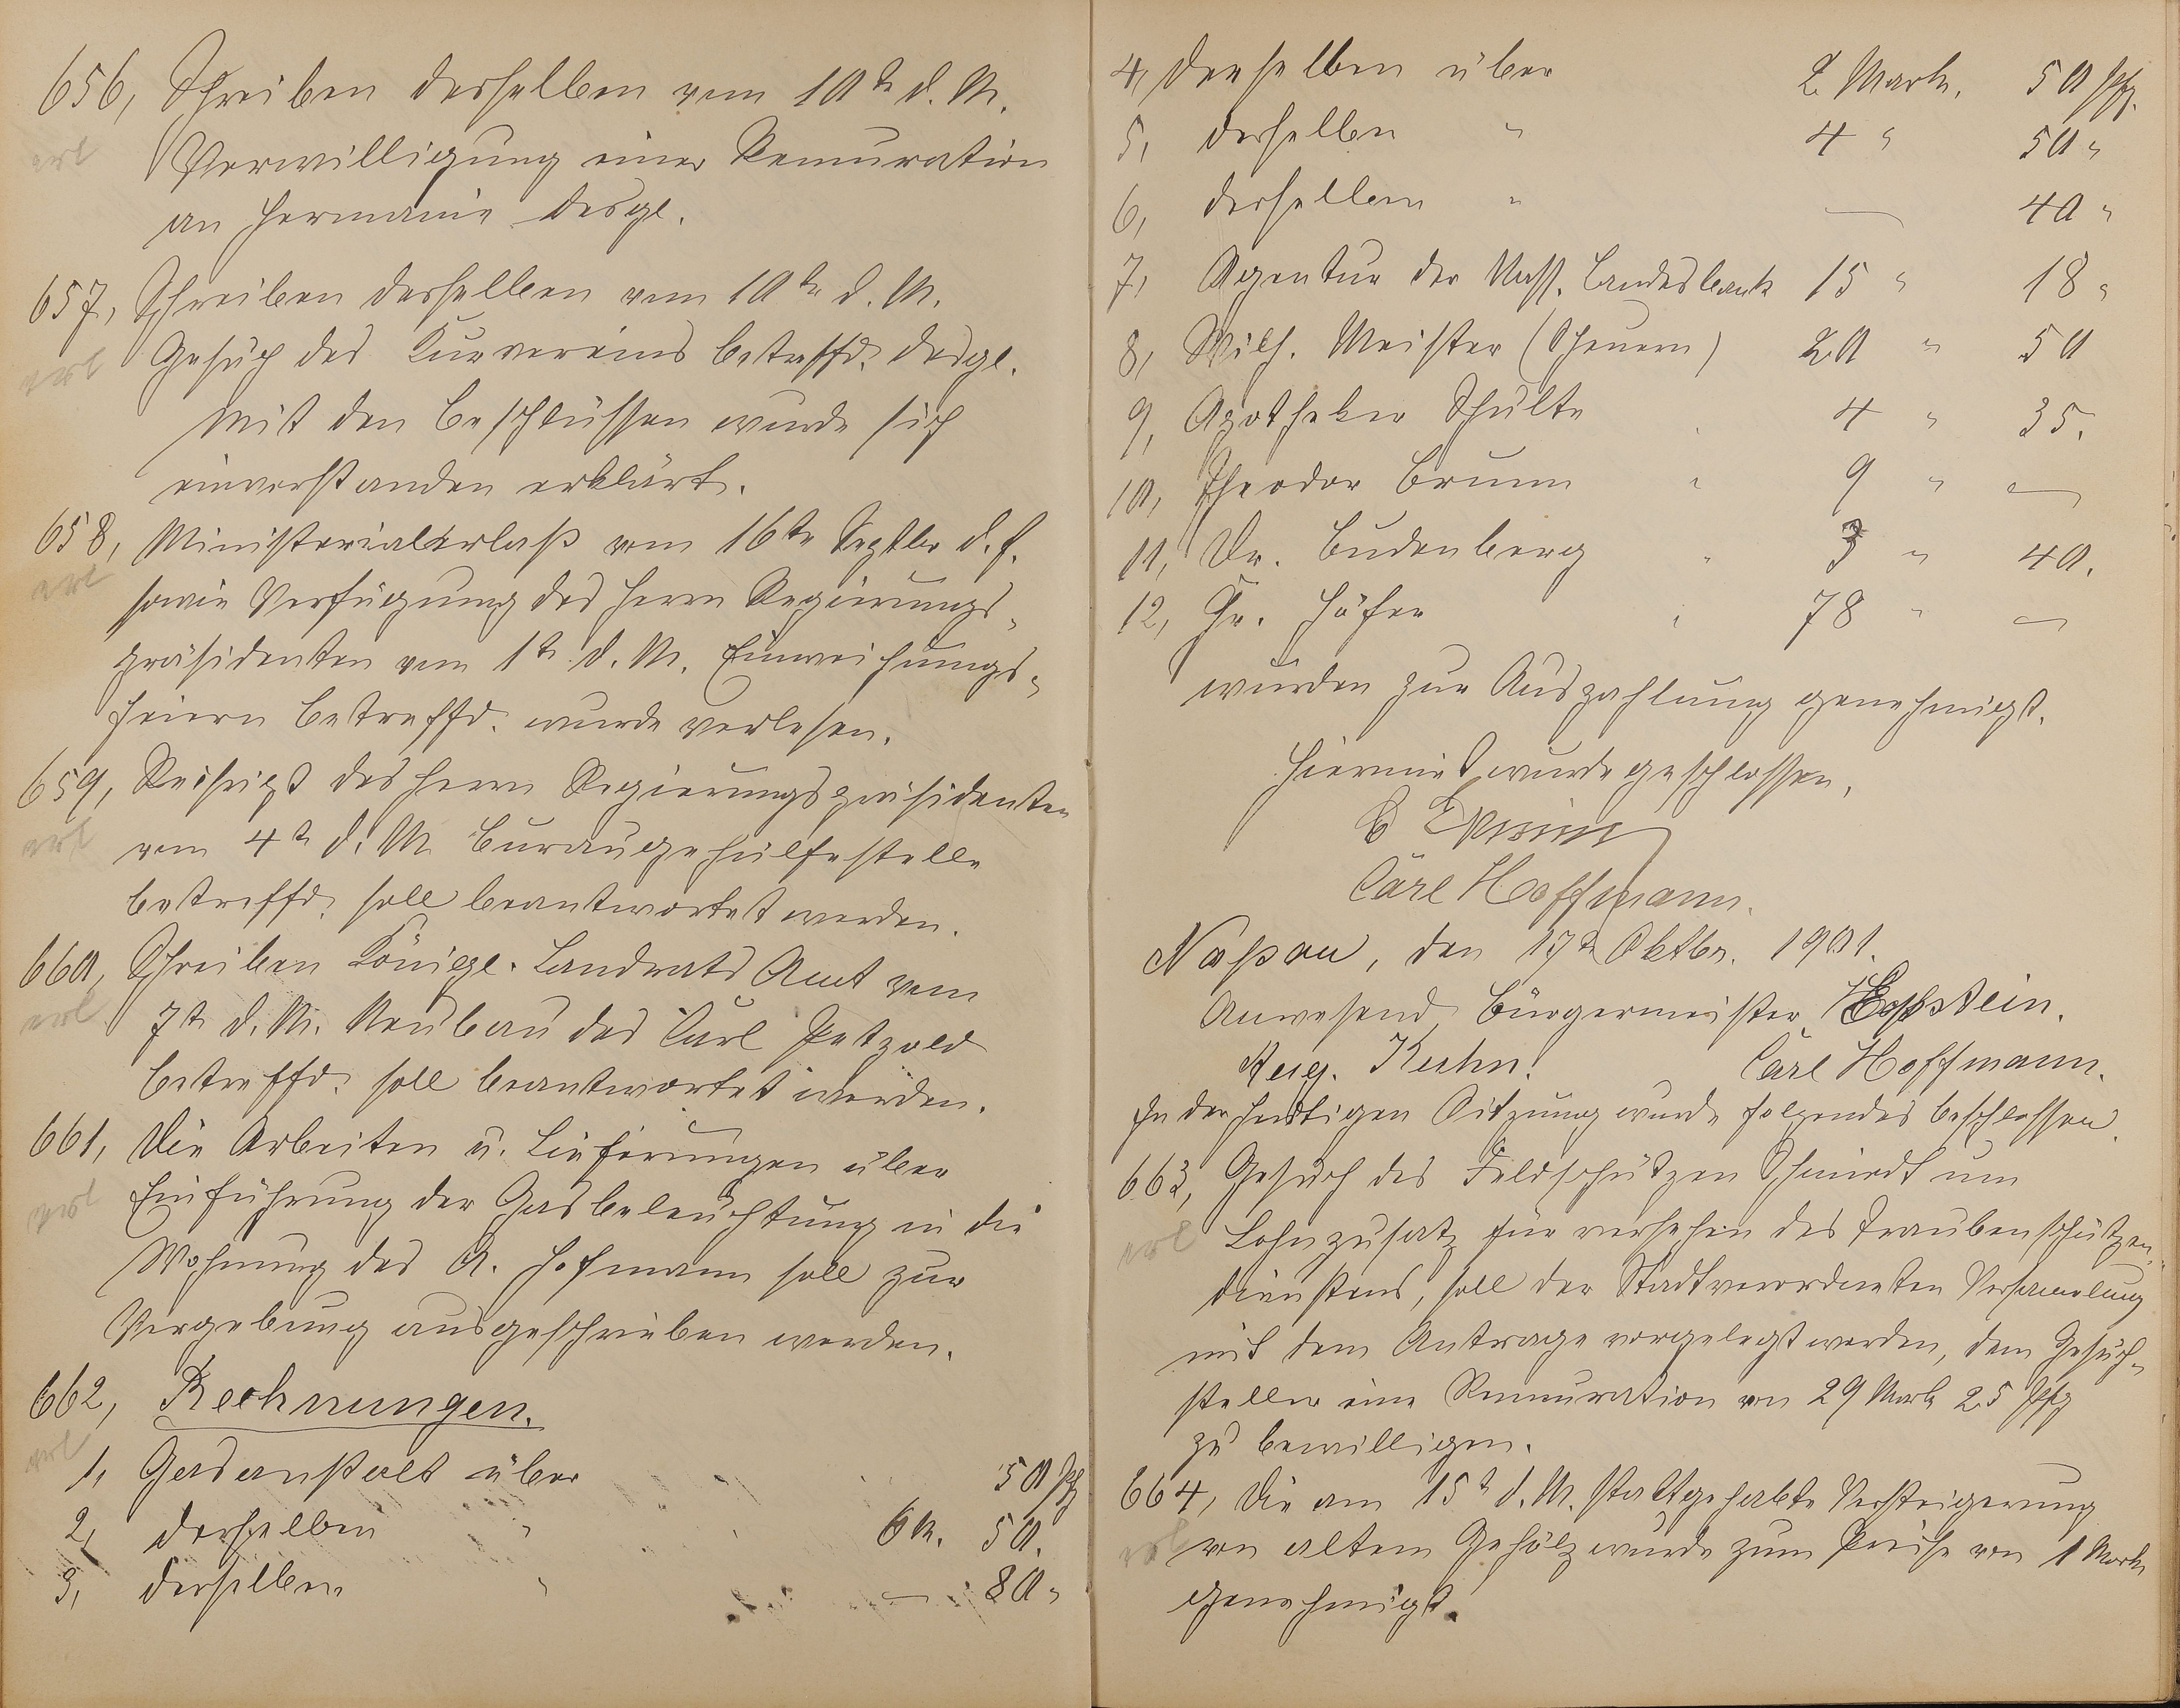 656, Schreiben desselben vom 10te d. M.
erl Verwilligung einer Remuration
an Hermanie desgl.
657, Schreiben desselben vom 10te d. M.
erl Gesuch des Kurvereins betreffd. desgl.
Mit den Beschlüssen wurde sich
einverstanden erklärt.
658, Ministerialerlaß vom 16te Septbr d. J.
erl sowie Verfügung des Herrn Regierungs-
präsidenten vom 1te d. M. Einweihungs-
feiern betreffd. wurde verlesen.
659, des Herrn Regierungspräsidenten
erl vom 4te d. M. Buraugehülfestelle
betreffd. soll beantwortet werden.
660, Schreiben Königl. Landrats Amt vom
erl 7te d. M. Neubau des Carl Petzold
betreffd. soll beantwortet werden.
661, Die Arbeiten u. Lieferungen über
erl Einführung der Gasbeleuchtung in die
Wohnung des A. Hofmann soll zur
Vergebung ausgeschrieben werden.
662, Rechnungen.
erl
1, Gasanstalt über 50 Pfg
2, derselben " 6 M. 50.
3, derselben " — 80 "
4, derselben über 2 Mark. 50 Pfg.
5, derselben " 4 " 50 "
6, derselben " — 40 "
7, Agentur der Nass. Landesbank 15 " 18 "
8, Wilh. Meister (Scheuern) 20 " 50
9, Apotheker Schulte 4 " 35.
10, Theodor Brumm " 9 " —
11, Dr. Budenberg " 3 " 40.
12, Gr. Höfer " 78 " —
wurden zur Auszahlung genehmigt.
Hiermit wurde geschlossen.
Carl Hoffmann.
Naßau, den 17te Oktbr. 1901.
Anwesend Bürgermeister Eppstein.
Aug. Kuhn. Carl Hoffmann.
In der heutigen Sitzung wurde folgendes beschlossen.
663, Gesuch des Feldschützen Schmidt um
erl Lohnzusatz für versehen des Traubenschützen-
dienstens, soll der Stadtverordneten Versamlung
mit dem Antrage vorgelegt werden, dem Gesuch-
steller eine Remuration von 29 Mark 25 Pfg
zu bewilligen.
664, Die am 15te d. M. stattgehabte Versteigerung
erl von altem Gehölz wurde zum Preise von 1 Mark
genehmigt.